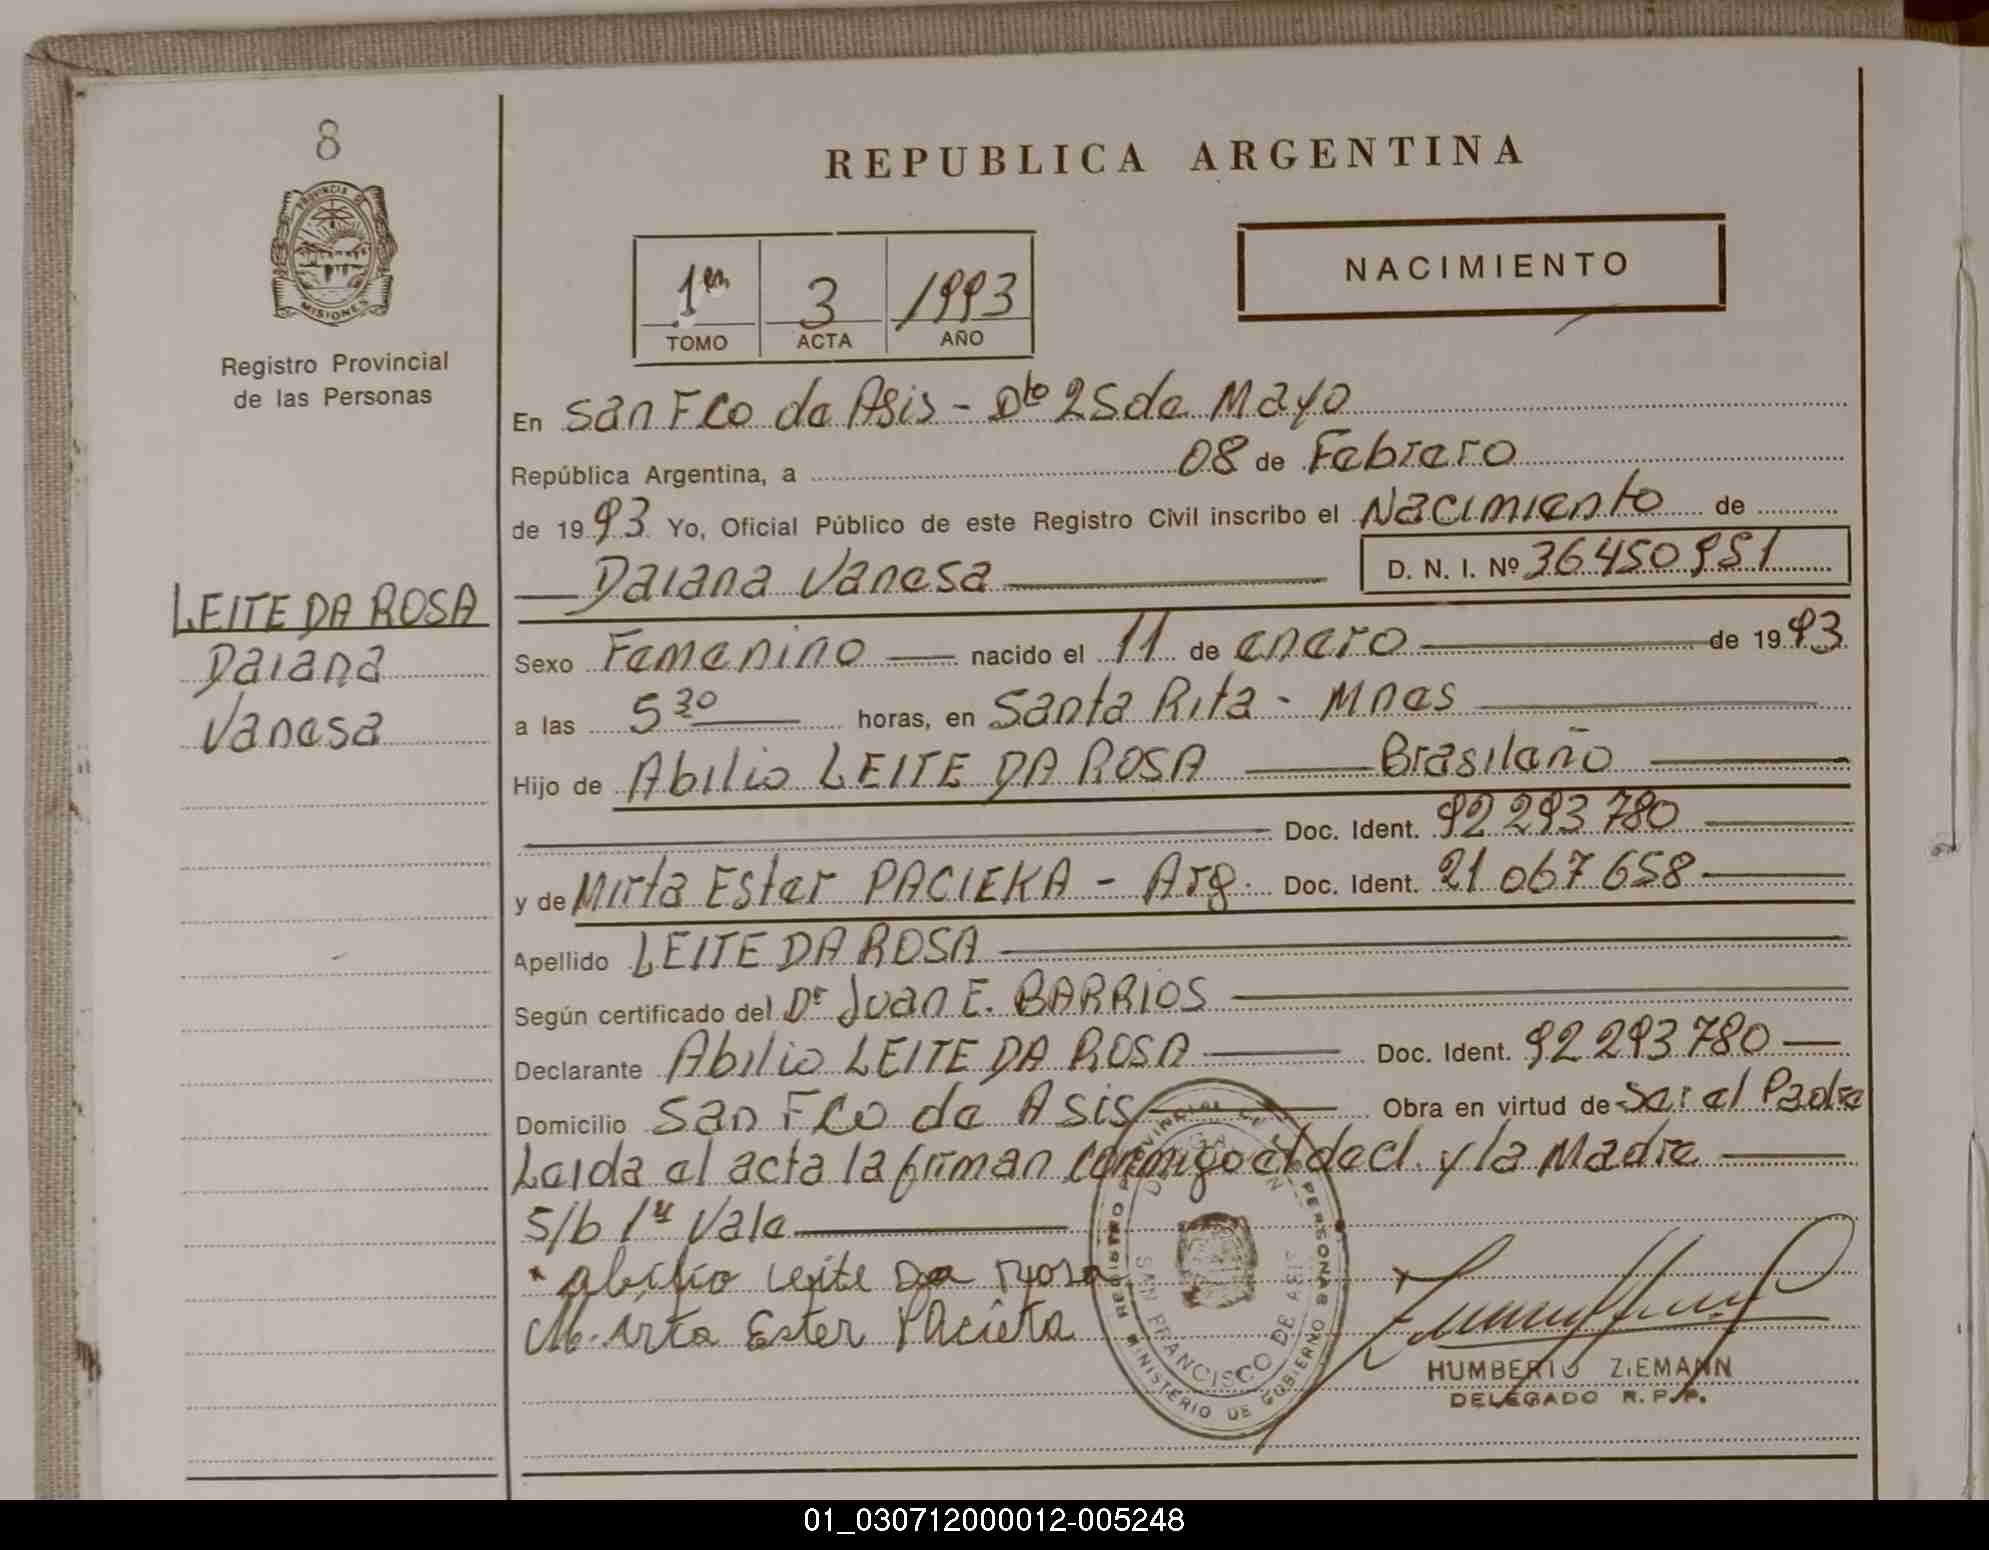 8
PROVINCIA DE
MISIONES
Registro Provincial
de las Personas
LEITE DA ROSA
Daiana
Vanesa
REPUBLICA ARGENTINA
NACIMIENTO
1er 3 1993
TOMO ACTA AÑO
En San Fco de Asis - Dto 25 de Mayo
República Argentina, a 08 de Febrero
de 1993 Yo, Oficial Público de este Registro Civil inscribo el Nacimiento de
Daiana Vanesa D. N. I. Nº 36450951
Sexo Femenino nacido el 11 de enero de 1993
a las 5 30 horas, en Santa Rita - Mnes
Hijo de Abilio LEITE DA ROSA Brasileño
Doc. Ident. 92 293 780
y de Mirta Ester PACIEKA - Arg. Doc. Ident. 21 067 658
Apellido LEITE DA ROSA
Según certificado del Dr Juan E. BARRIOS
Declarante Abilio LEITE DA ROSA Doc. Ident. 92 293 780
Domicilio San Fco de Asis Obra en virtud de Ser el Padre
Leida el acta la firman conmigo el decl. y la Madre
S/b 1u Vale
abilio leite Da rosa
Mirta Ester Pacieka
REGISTRO PROVINCIAL DE PERSONAS
DELEGACION
SAN FRANCISCO DE ASIS
MINISTERIO DE GOBIERNO
HUMBERTO ZIEMANN
DELEGADO R. P. P.
01_030712000012-005248